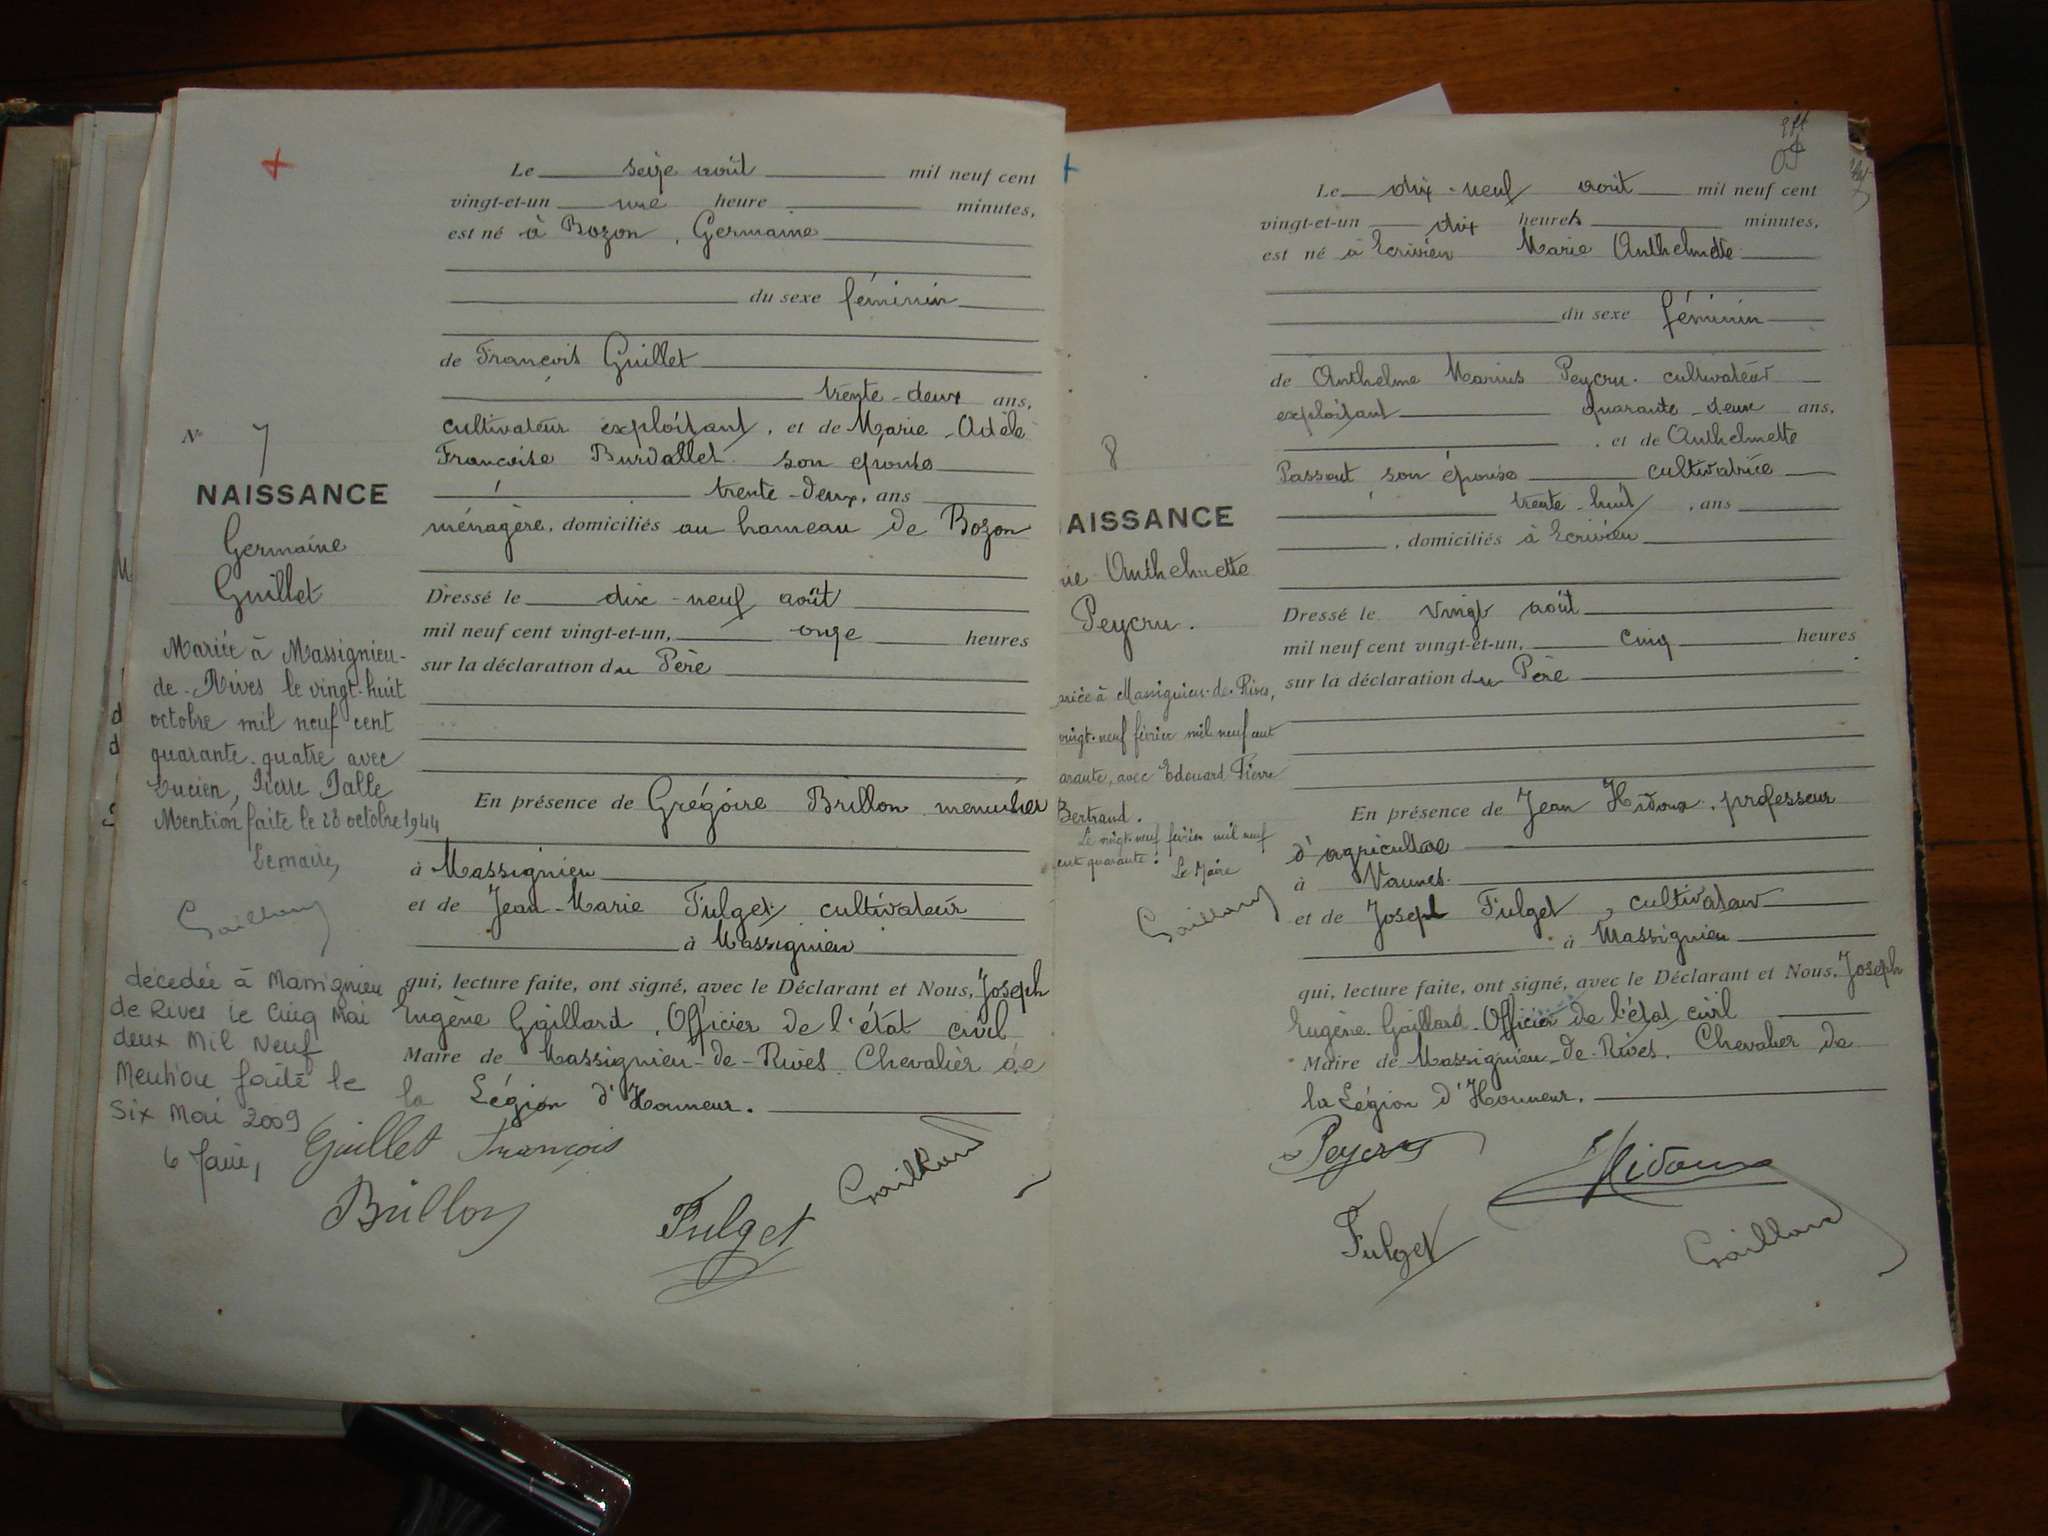 Le seize août mil neuf cent
vingt-et-un une heure minutes,
est né à Bozon, Germaine
du sexe féminin
de François Guillet
trente-deux ans,
cultivateur exploitant, et de Marie-Adèle
Françoise Burdallet son épouse
trente-deux, ans
ménagère, domiciliés au hameau de Bozon
Dressé le dix-neuf août
mil neuf cent vingt-et-un, onze heures
sur la déclaration du Père
En présence de Grégoire Brillon menuisier
à Massignieu
et de Jean-Marie Fulget, cultivateur
à Massignieu
qui, lecture faite, ont signé, avec le Déclarant et Nous, Joseph
Eugène Gaillard, Officier de l'état civil
Maire de Massignieu-de-Rives Chevalier de
la Légion d'Honneur.
Guillet François
Brillon Fulget Gaillard
N° 7
NAISSANCE
Germaine
Guillet
Mariée à Massignieu-
de-Rives le vingt-huit
octobre mil neuf cent
quarante-quatre avec
Lucien, Pierre Dalle
Mention faite le 28 octobre 1944
Le maire,
Gaillard
décédée à Massignieu
de Rives le Cinq Mai
deux Mil Neuf
Mention faite le
Six Mai 2009
Le dix-neuf août mil neuf cent
vingt-et-un dix heures minutes,
est né à Ecrivieu Marie Anthelmette
du sexe féminin
de Anthelme Marius Peycru. cultivateur
exploitant quarante-deux ans,
, et de Anthelmette
Passout son épouse cultivatrice
trente-huit, ans
, domiciliés à Ecrivieu
Dressé le vingt août
mil neuf cent vingt-et-un, cinq heures
sur la déclaration du Père
En présence de Jean Hidoux, professeur
d'agriculture
à Vannes.
et de Joseph Fulget, cultivateur
à Massignieu
qui, lecture faite, ont signé, avec le Déclarant et Nous, Joseph
Eugène Gaillard Officier de l'état civil
Maire de Massignieu-de-Rives. Chevalier de
la Légion d'Honneur.
Peycru Hidoux
Fulget Gaillard
8
AISSANCE
ie Anthelmette
Peycru.
ariée à Massignieu-de-Rives,
vingt-neuf février mil neuf cent
arante, avec Edouard Pierre
Bertrand.
Le vingt-neuf février mil neuf
cent quarante.
Le Maire
Gaillard